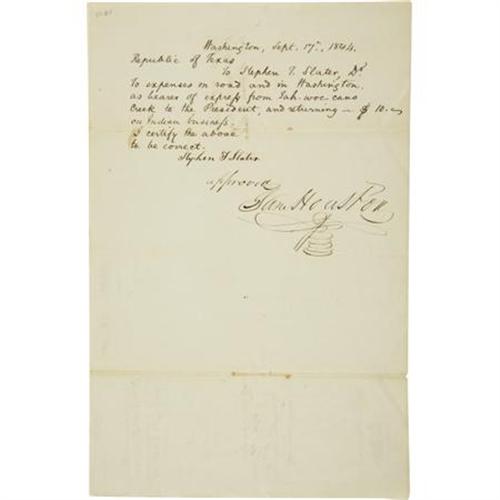 Washington, Sept. 17th, 1844.
Republic of Texas
To Stephen T. Slater, Dr
To expenses on road and in Washington,
as bearer of express from Tah-woc-cano
Creek to the President, and returning — $ 10.
on Indian business.
I certify the above
to be correct.
Stephen T Slater
approved
Sam Houston